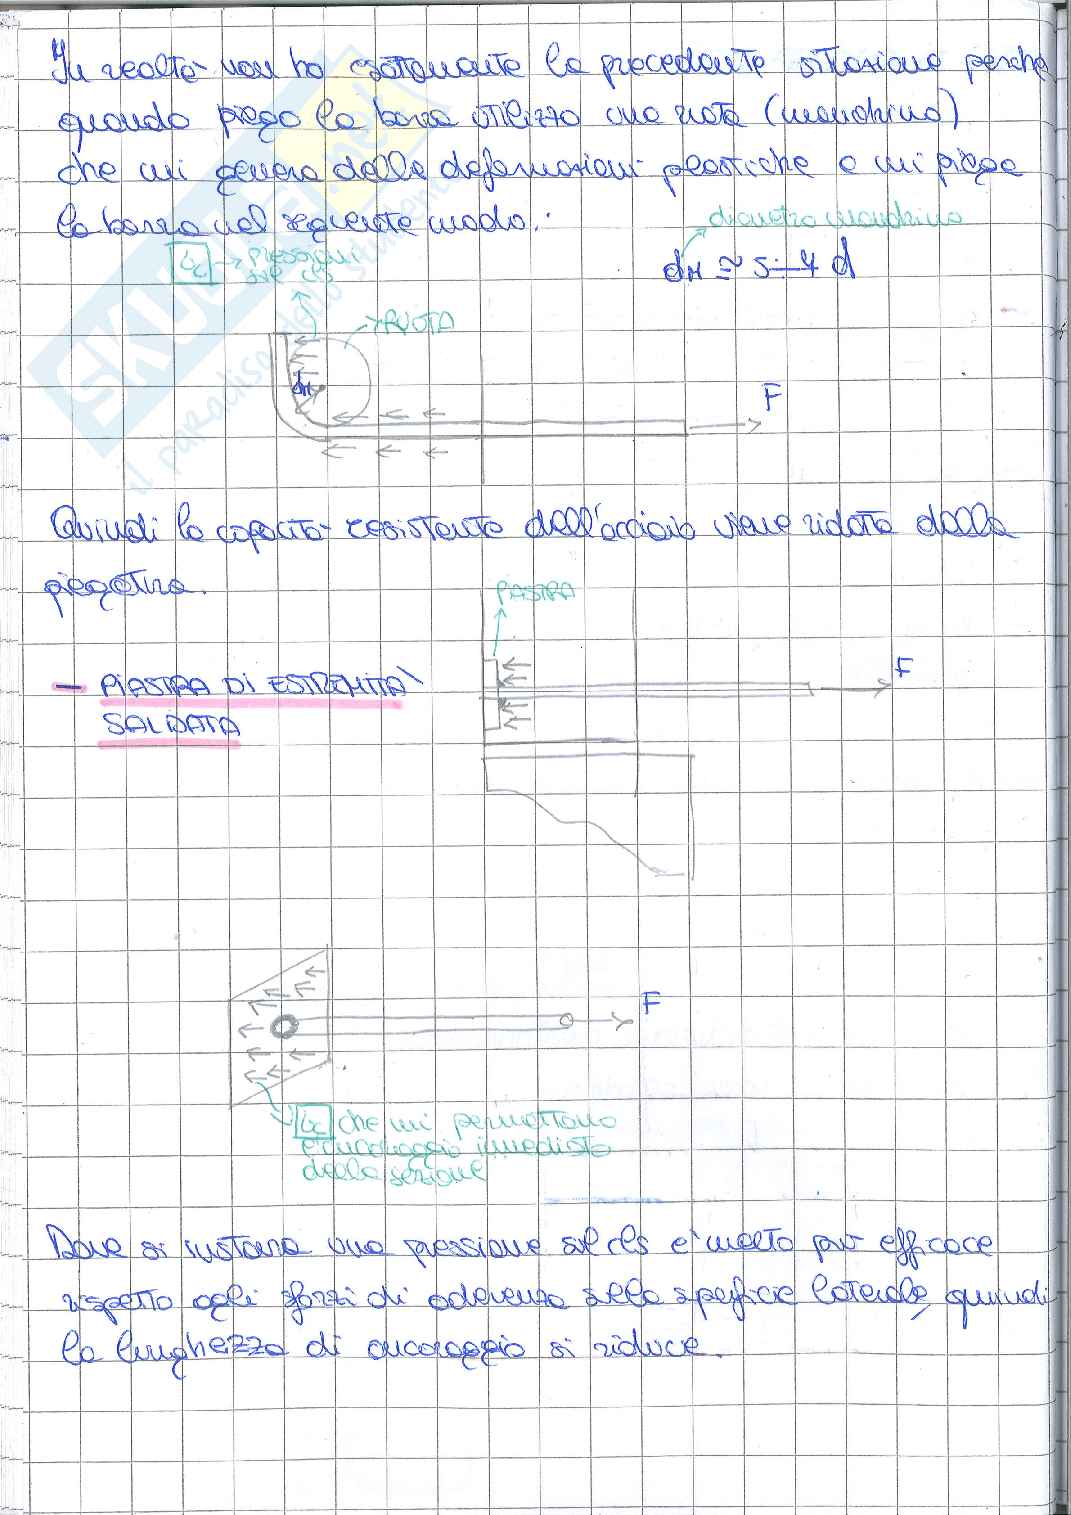 In realtà non ho esattamente la precedente situazione perché
quando piego la barra utilizzo una ruota (mandrino)
che mi genera delle deformazioni plastiche e mi piega
la barra nel seguente modo:
diametro mandrino
σc → pressioni
sul cls
dM ≅ 5÷4 d
RUOTA
dM
F
Quindi la capacità resistente dell'acciaio viene ridotta dalla
piegatura.
PIASTRA
F
– PIASTRA DI ESTREMITA'
SALDATA
F
σc che mi permettono
l'ancoraggio immediato
della sezione
Dove si instaura una pressione sul cls è molto più efficace
rispetto agli sforzi di aderenza sulla superficie laterale, quindi
la lunghezza di ancoraggio si riduce.
SKUOLA.net
il paradiso dello studente